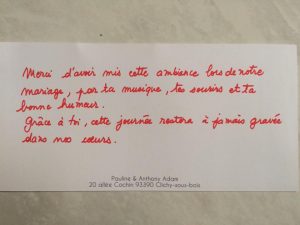 Merci d'avoir mis cette ambiance lors de notre
mariage, par ta musique, tes sourires et ta
bonne humeur.
Grâce à toi, cette journée restera à jamais gravée
dans nos cœurs.
Pauline & Anthony Adam
20 allée Cochin 93390 Clichy-sous-bois